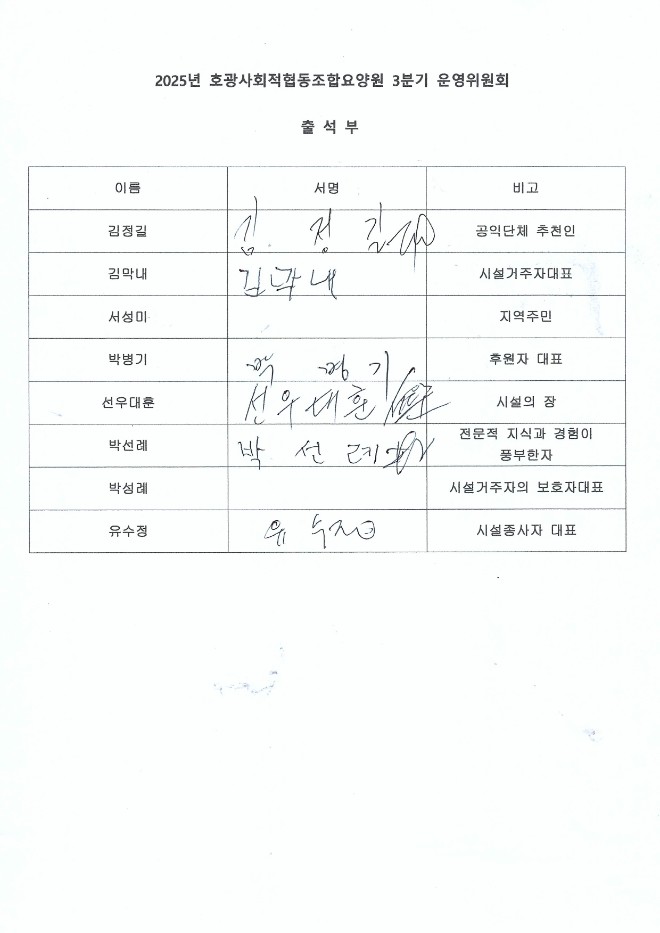 2025년 호광사회적협동조합요양원 3분기 운영위원회
출 석 부
이름 서명 비고
김정길 김 정 길 공익단체 추천인
김막내 김막내 시설거주자대표
서성미 지역주민
박병기 박 병 기 후원자 대표
선우대훈 선우대훈 시설의 장
박선례 박 선 례 전문적 지식과 경험이
풍부한자
박성례 시설거주자의 보호자대표
유수정 유 수정 시설종사자 대표